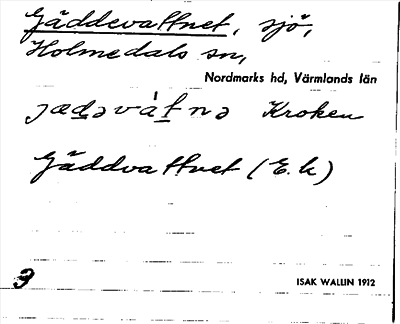 Gäddevattnet, sjö,
Holmedals sn,
Nordmarks hd, Värmlands län
Kroken
Gäddvattnet (E.k)
9
ISAK WALLIN 1912